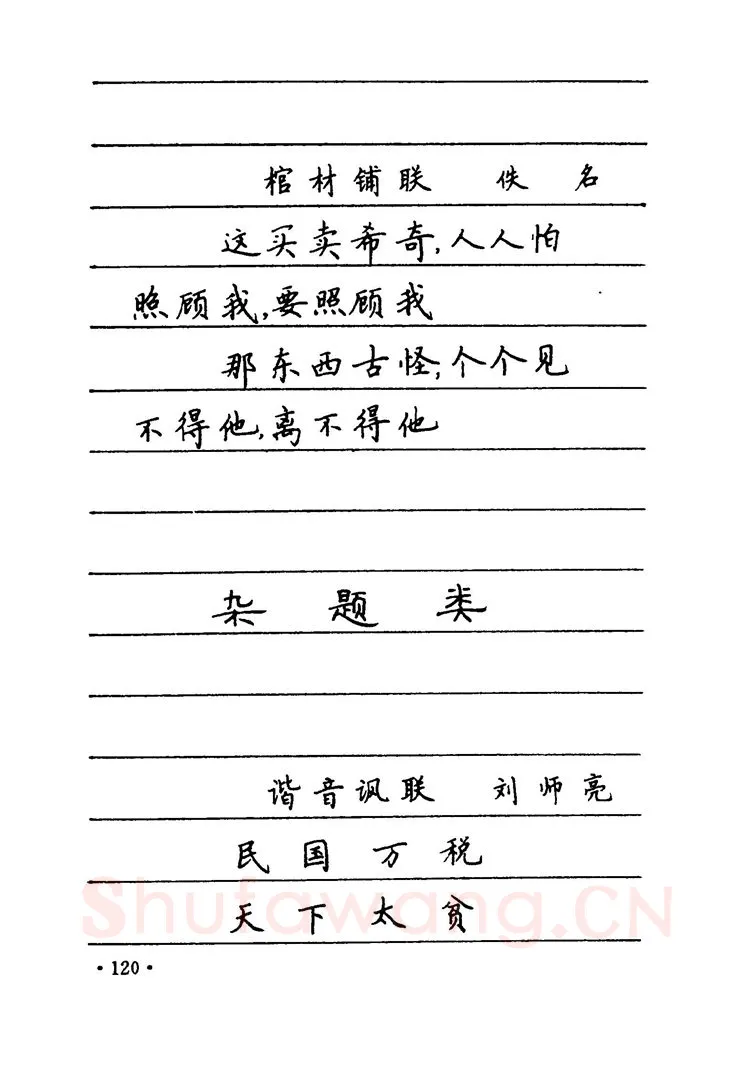 棺材铺联 佚名
这买卖希奇,人人怕
照顾我,要照顾我
那东西古怪;个个见
不得他,离不得他
杂题类
谐音讽联 刘师亮
民国万税
天下太贫
Shufawang.CN
·120·